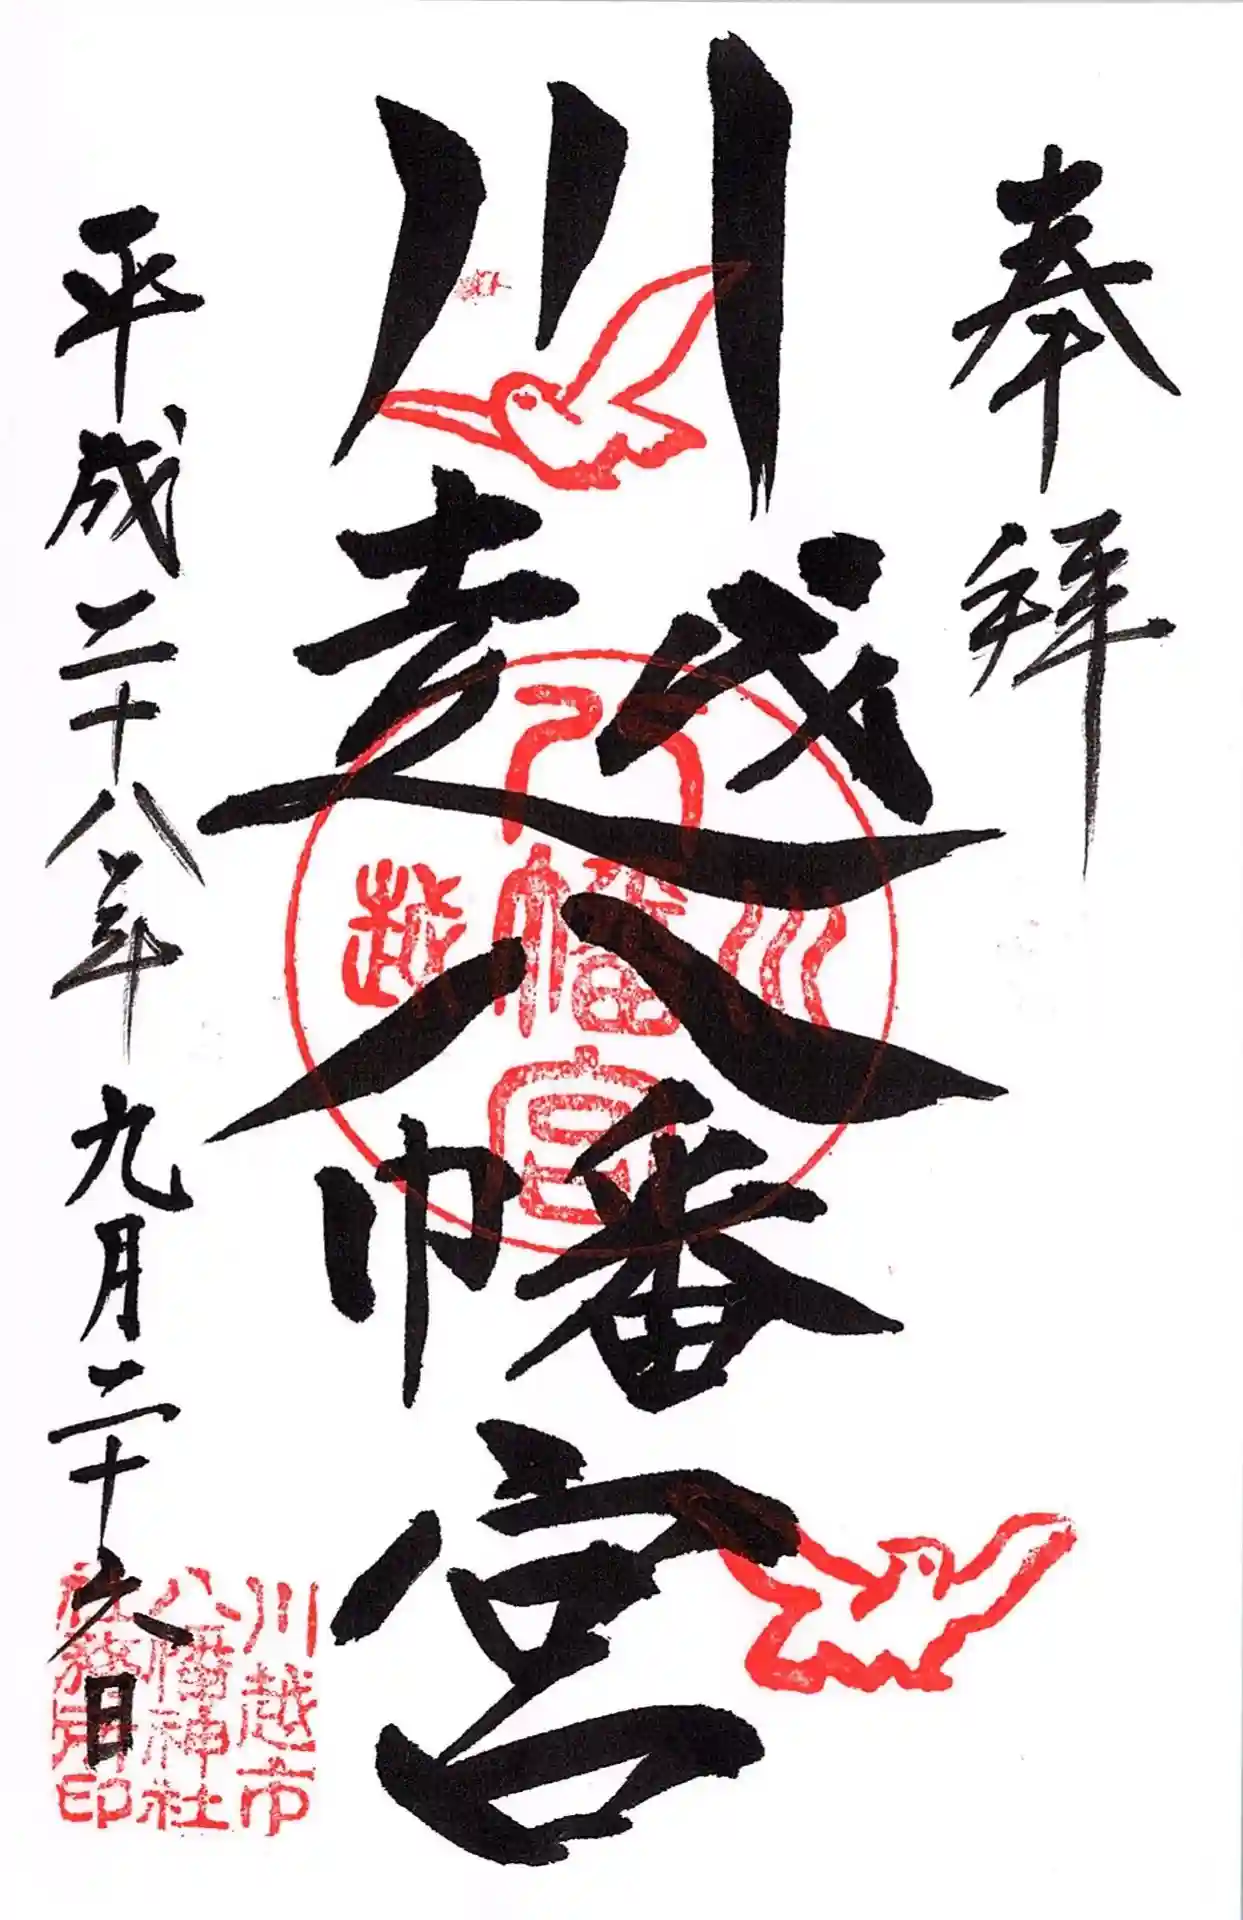 奉拝
川越八幡宮
川越
八幡宮
平成二十八年九月二十六日
川越市
八幡神社
社務所印